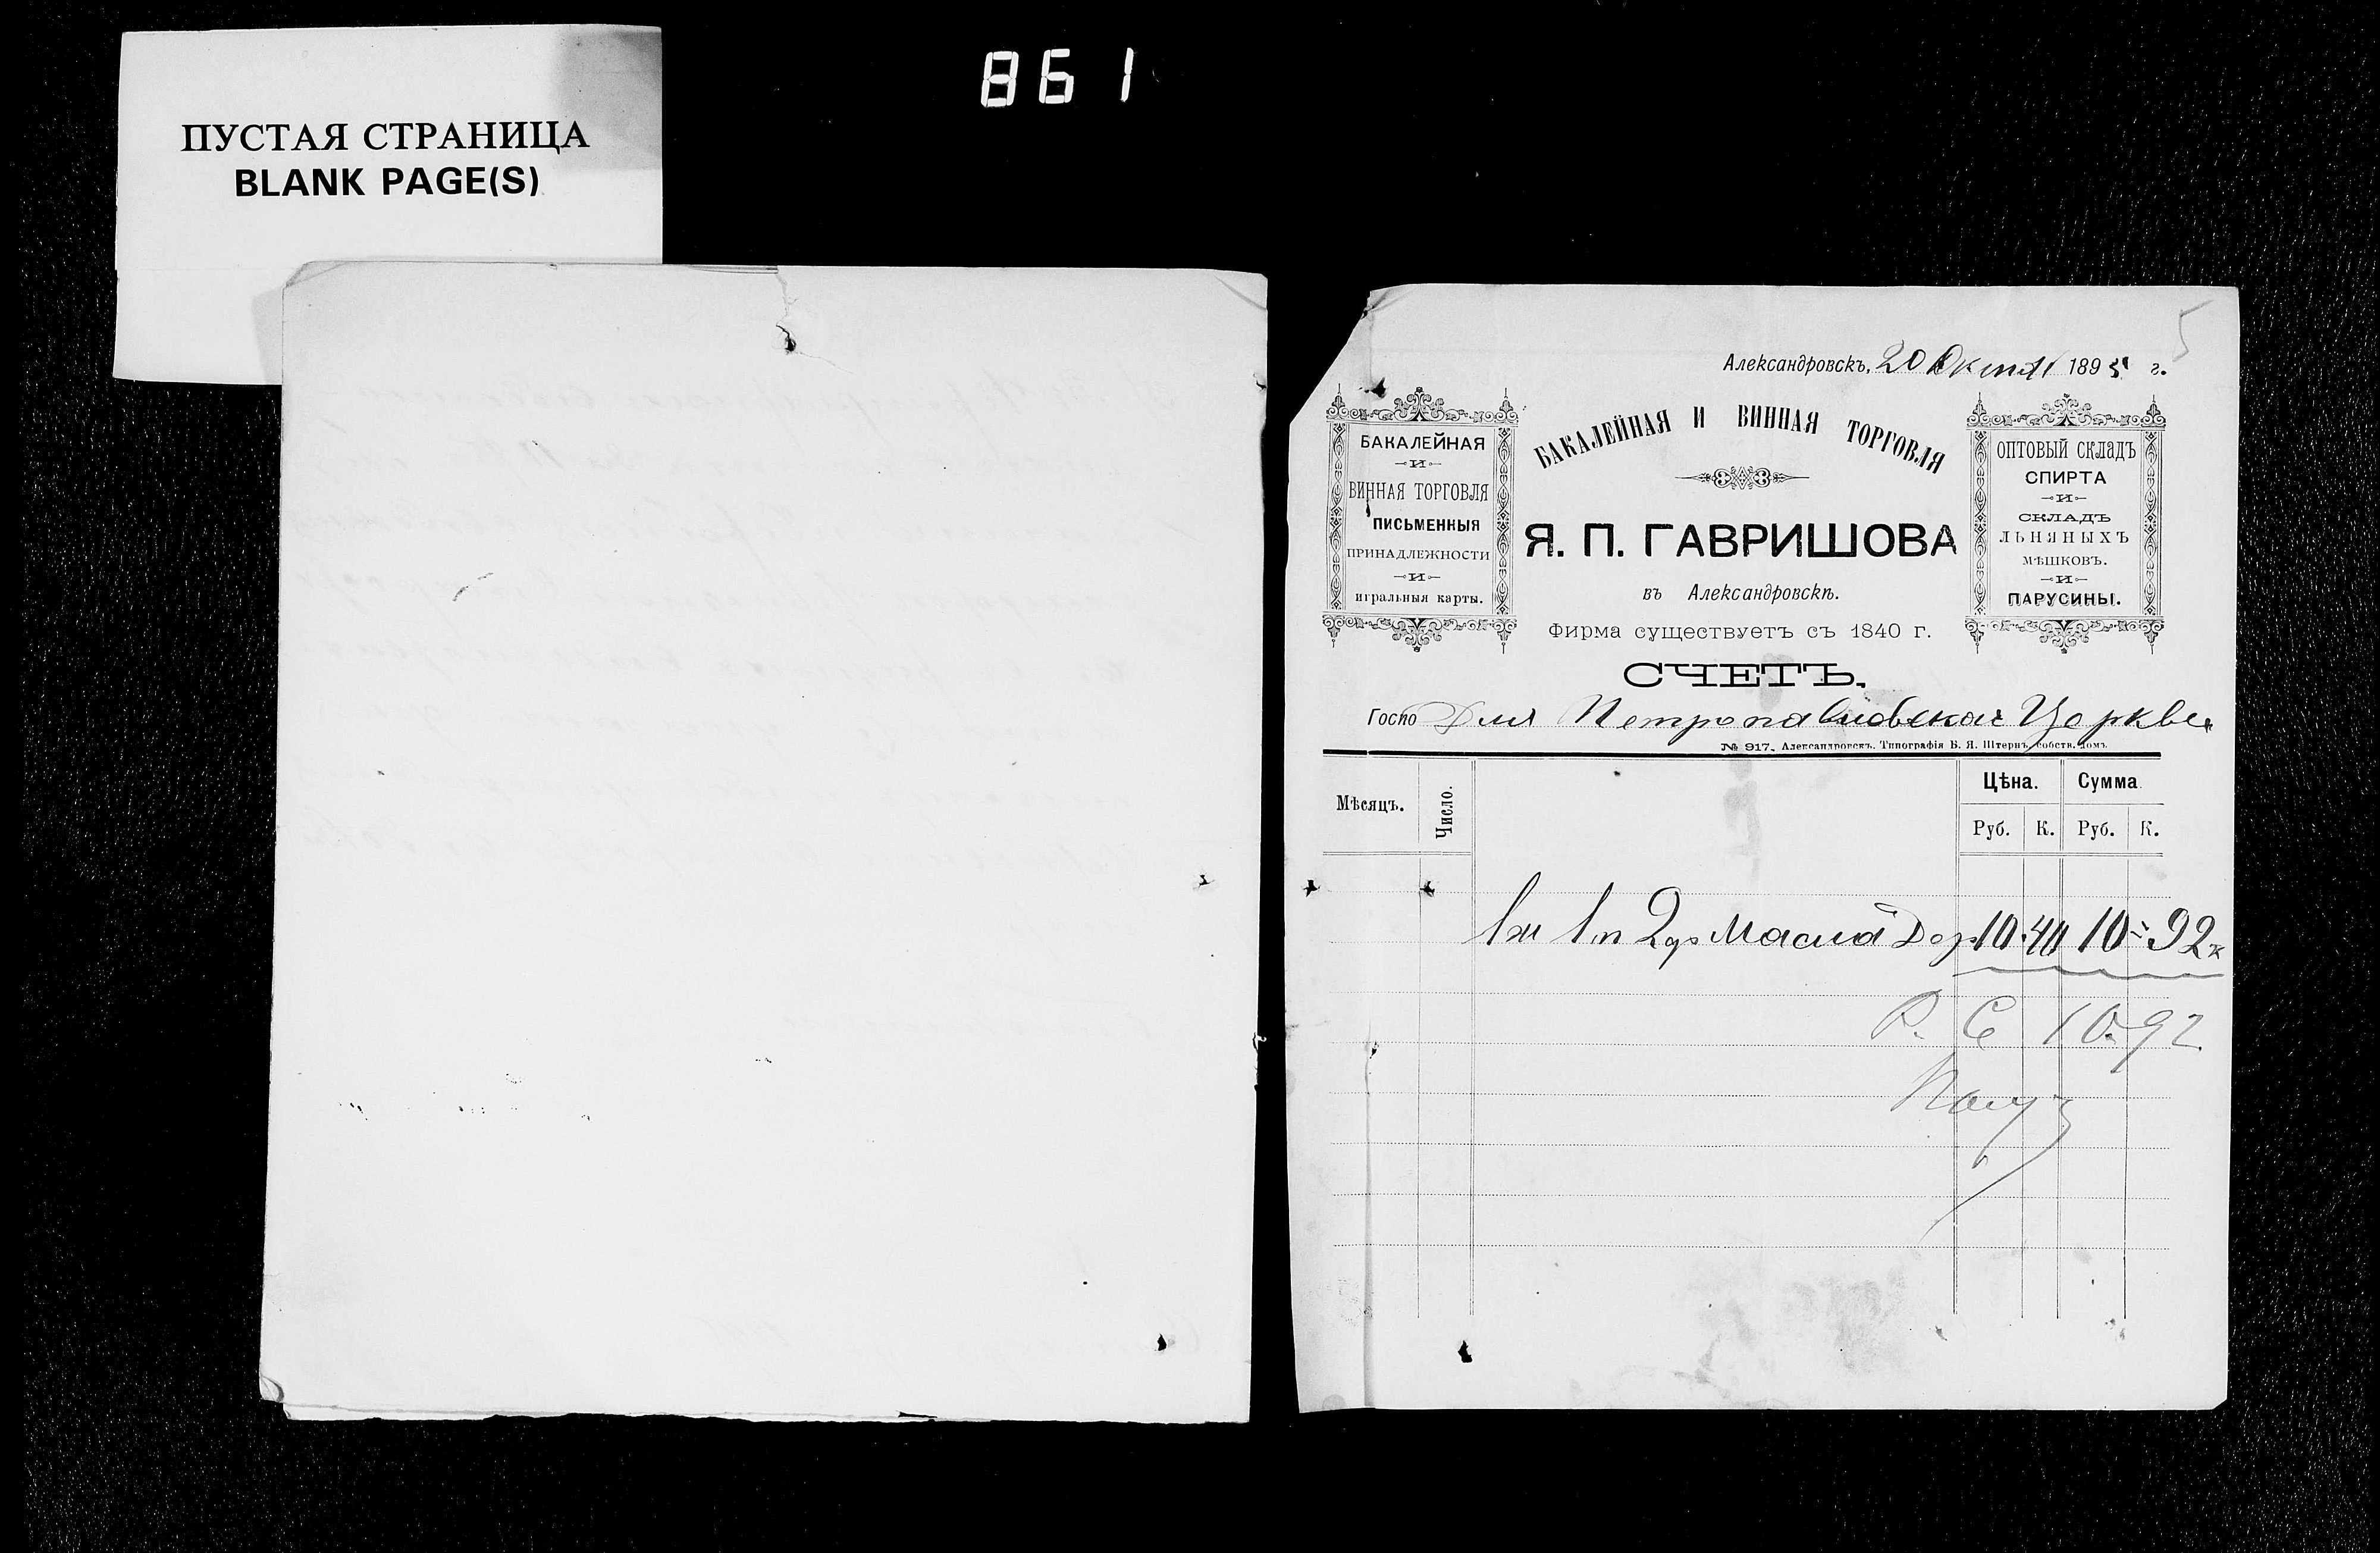 861
ПУСТАЯ СТРАНИЦА
BLANK PAGE(S)
5
Александровскъ, 20 Октяб 1895 г.
БАКАЛЕЙНАЯ
и
ВИННАЯ ТОРГОВЛЯ
ПИСЬМЕННЫЯ
ПРИНАДЛЕЖНОСТИ
и
игральныя карты.
БАКАЛЕЙНАЯ И ВИННАЯ ТОРГОВЛЯ
Я. П. ГАВРИШОВА
въ Александровскѣ.
Фирма существуетъ съ 1840 г.
ОПТОВЫЙ СКЛАДЪ
СПИРТА
и
СКЛАДЪ
ЛЬНЯНЫХЪ
МѢШКОВЪ.
и
ПАРУСИНЫ.
СЧЕТЪ.
Госпо Для Петропавловской Церкви
№ 917. Александровскъ. Типографія Б. Я. Штернъ, собств. домъ.
Мѣсяцъ. Число. Цѣна. Сумма.
Руб. К. Руб. К.
1 2 Масла Дер 10.40 10 92
Р. С 10.92